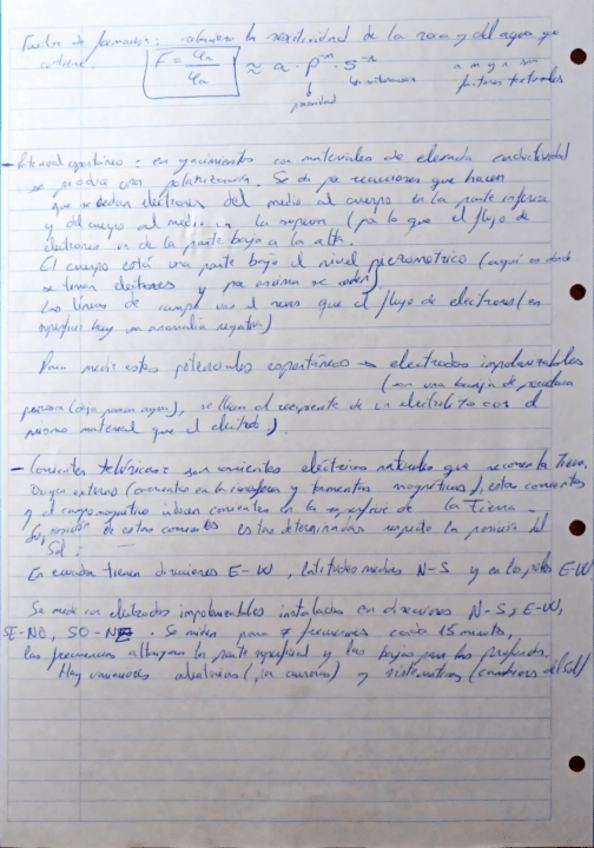 Factor de formación: relaciona la resistividad de la roca y del agua que
contiene.
F = φr / φa ≈ a · p^-m · s^-n
a m y n son
factores texturales
porosidad
- Potencial espontáneo : en yacimientos con materiales de elevada conductividad
se produce una polarización. Se da por reacciones que hacen
que se cedan electrones del medio al cuerpo en la parte inferior
y del cuerpo al medio en la superior (por lo que el flujo de
electrones va de la parte baja a la alta.
El cuerpo está una parte bajo el nivel piezométrico (aquí es donde
se toman electrones y por encima se ceden)
Las líneas de campo van al revés que el flujo de electrones (en
superficie hay una anomalía negativa)
Para medir estos potenciales espontáneos → electrodos impolarizables
(son una vasija de porcelana
porosa (deja pasar agua), se llena el recipiente de un electrolito con el
mismo material que el electrodo).
- Corrientes telúricas: son corrientes eléctricas naturales que recorren la Tierra.
Origen externo (corrientes en la ionosfera y tormentas magnéticas), estas corrientes
y el campo magnético inducen corrientes en la superficie de la Tierra.
Su posición de estas corrientes están determinadas respecto la posición del
Sol:
En ecuador tienen direcciones E-W, latitudes medias N-S y en los polos E-W
Se mide con electrodos impolarizables instalados en direcciones N-S, E-W,
SE-NO, SO-NE. Se miden para 7 frecuencias cada 15 minutos,
las frecuencias altas para la parte superficial y las bajas para las profundas.
Hay variaciones aleatorias ( ) y sistemáticas (cambios del Sol)